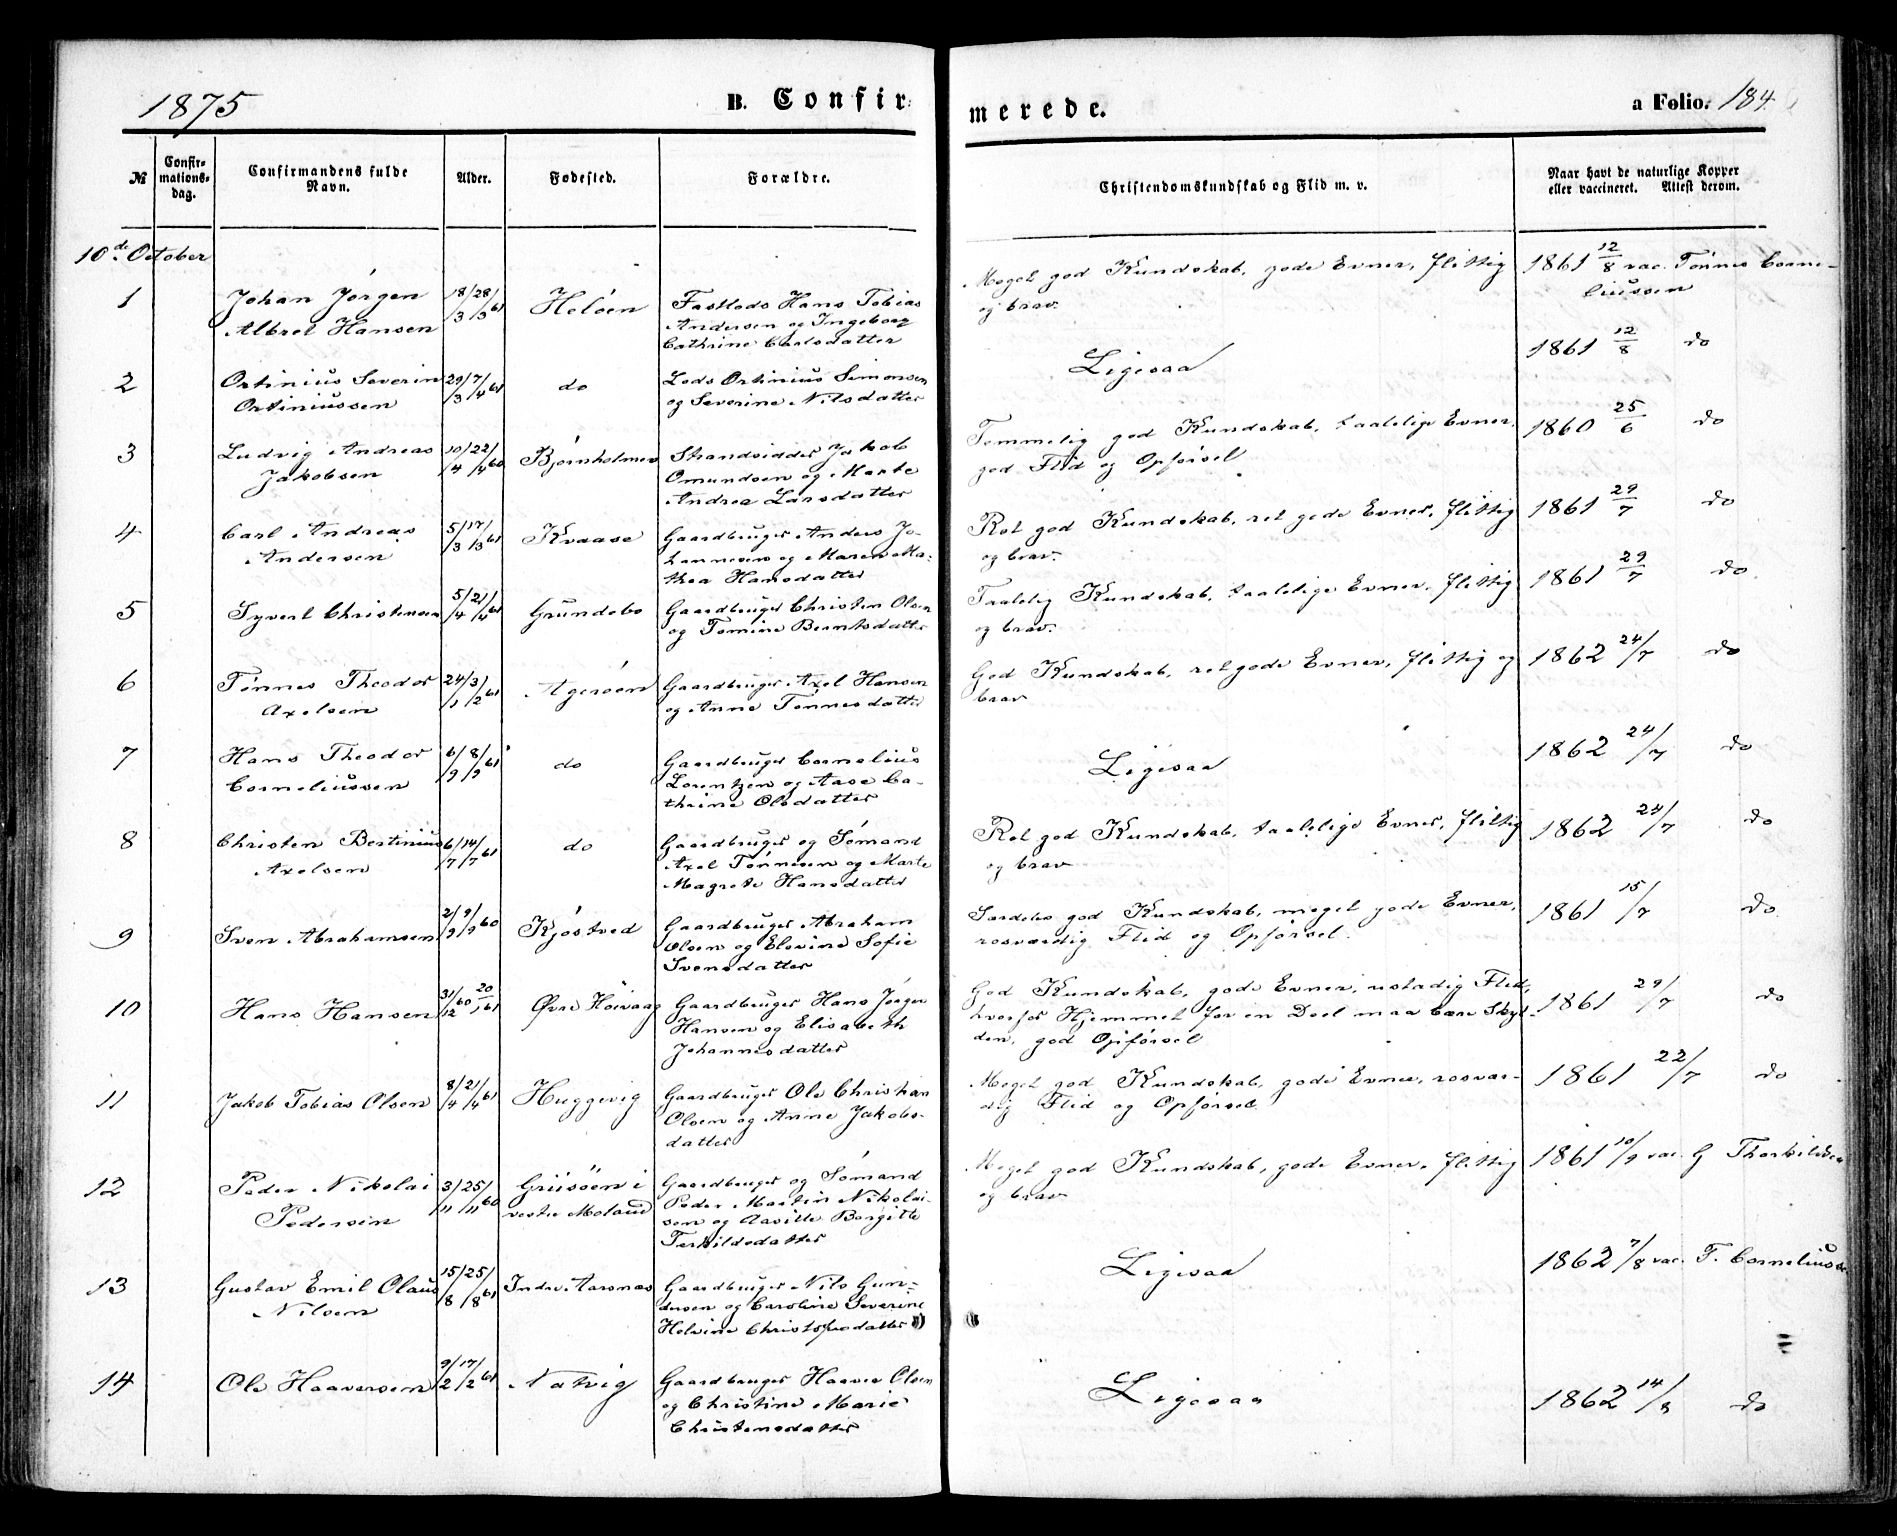 1875
B. Confir-
merede.
a Folio. 184
№
Confir-
mations-
dag.
Confirmandens fulde
Navn.
Alder.
Fødested.
Forældre.
Christendomskundskab og Flid m. v.
Naar havt de naturlige Kopper
eller vaccineret. Attest derom.
10de October
1
Johan Jörgen
Albret Hansen
18/3 28/3 61
Helöen
Fastlods Hans Tobias
Andersen og Ingeborg
Cathrine Carlsdatter
Meget god Kundskab, gode Evner, flittig
og brav.
1861 12/8 vac. Tönnes Corne-
liussen
2
Ortinius Severin
Ortiniussen
29/3 7/4 61
do
Lods Ortinius Simonsen
og Severine Nilsdatter
Ligesaa
1861 12/8 do
3
Ludvig Andreas
Jakobsen
10/4 22/4 60
Bjørnholmen
Strandsidder Jakob
Omundsen og Marte
Andrea Larsdatter
Temmelig god Kundskab, taalelige Evner,
god Flid og Opförsel
1860 25/6 do
4
Carl Andreas
Andersen
5/3 17/3 61
Kvaase
Gaardbruger Anders Jo-
hannesen og Maren Ma-
thea Hansdatter
Ret god Kundskab, ret gode Evner, flittig
og brav.
1861 29/7 do
5
Syvert Christensen
5/4 21/4 61
Grundebo
Gaardbruger Christen Olsen
og Tomine Berntsdatter
Taalelig Kundskab, taalelige Evner, flittig
og brav.
1861 29/7 do
6
Tönnes Theodor
Axelsen
24/1 3/2 61
Ageröen
Gaardbruger Axel Hansen
og Anne Tönnesdatter
God Kundskab, ret gode Evner, flittig og
brav
1862 24/7 do
7
Hans Theodor
Corneliussen
6/9 8/9 61
do
Gaardbruger Cornelius
Lorentzen og Aase Ca-
thrine Olsdatter
Ligesaa
1862 24/7 do
8
Christen Bertinius
Axelsen
6/7 14/7 61
do
Gaardbruger og Sömand
Axel Tönnesen og Marte
Magrete Hansdatter
Ret god Kundskab, taalelige Evner, flittig
og brav
1862 24/7 do
9
Sven Abrahamsen
2/9 9/9 60
Kjöstved
Gaardbruger Abraham
Olsen og Elevine Sofie
Svensdatter
Særdeles god Kundskab, meget gode Evner,
rosværdig Flid og Opförsel.
1861 15/7 do
10
Hans Hansen
31/12 60 20/1 61
Övre Höivaag
Gaardbruger Hans Jörgen
Hansen og Elisabeth
Johannesdatter
God Kundskab, gode Evner, ustadig Flid,
hvorfor Hjemmet for en Deel maa bære Skyl-
den, god Opförsel
1861 29/7 do
11
Jakob Tobias Olsen
8/4 21/4 61
Huggevig
Gaardbruger Ole Christian
Olsen og Anne Jakobs-
datter
Meget god Kundskab, gode Evner, rosvær-
dig Flid og Opförsel
1861 22/7 do
12
Peder Nikolai
Pedersen
3/11 25/11 60
Griisöen i
vestre Moland
Gaardbruger og Sömand
Peder Martin Nikolai-
sen og Aasille Bergitte
Terkildsdatter
Meget god Kundskab, gode Evner, flittig
og brav
1861 10/9 vac. G Thorkildsen
13
Gustav Emil Olaus
Nilsen
15/8 25/8 61
Indre Aarsnæs
Gaardbruger Nils Gun-
dersen og Caroline Severine
Helvine Christophersdatter
Ligesaa
1862 7/8 vac. T. Corneliussen
14
Ole Haaversen
9/2 17/2 61
Natvig
Gaardbruger Haaver Olsen
og Christine Marie
Christensdatter
Ligesaa
1862 14/8 do